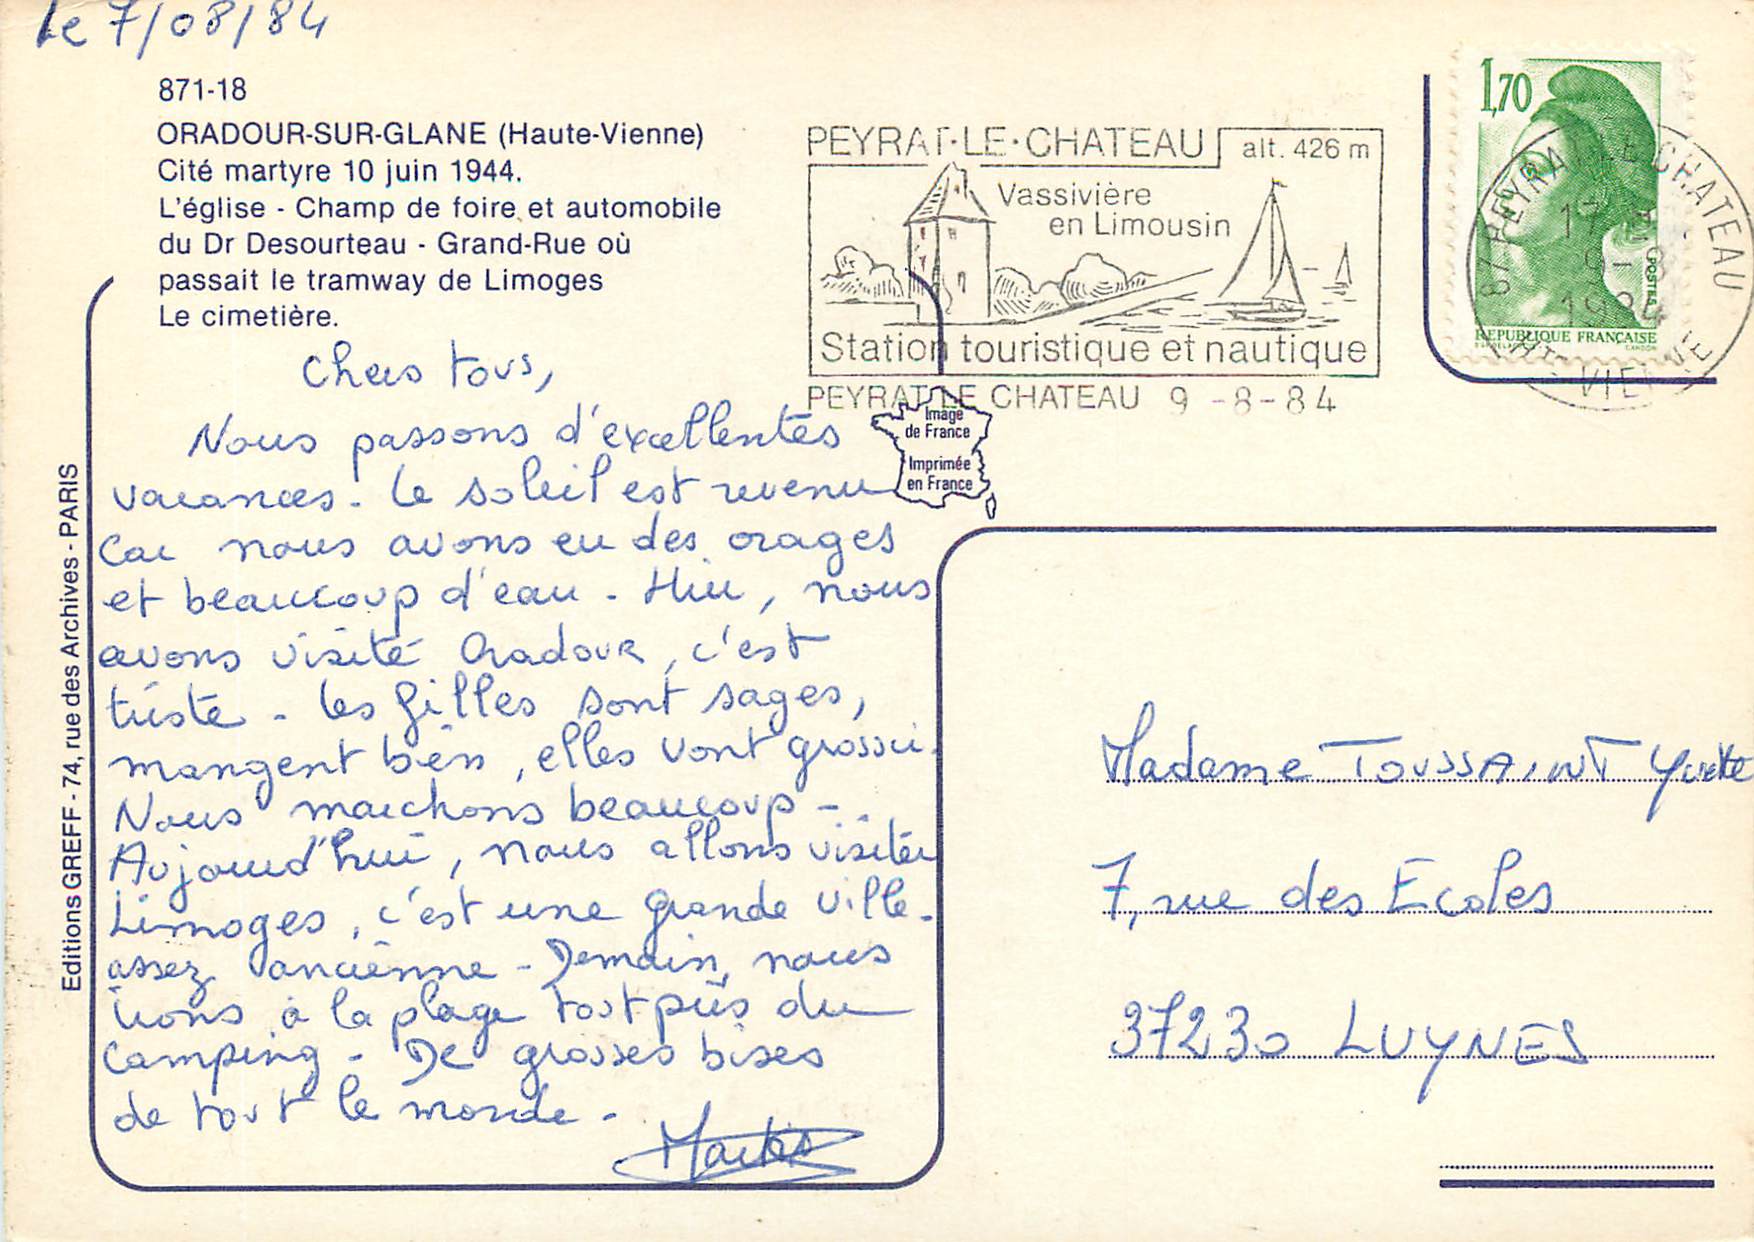 Le 7/08/84
871-18
ORADOUR-SUR-GLANE (Haute-Vienne)
Cité martyre 10 juin 1944.
L'église - Champ de foire et automobile
du Dr Desourteau - Grand-Rue où
passait le tramway de Limoges
Le cimetière.
Chers tous,
Nous passons d'excellentes
vacances. Le soleil est revenu
car nous avons eu des orages
et beaucoup d'eau - Hier, nous
avons visité Oradour, c'est
triste - Les filles sont sages,
mangent bien, elles vont grossir.
Nous marchons beaucoup -
Aujourd'hui, nous allons visiter
Limoges, c'est une grande ville
assez ancienne - Demain, nous
irons à la plage tout près du
camping - De grosses bises
de tout le monde -
Editions GREFF - 74, rue des Archives - PARIS
PEYRAT·LE·CHATEAU alt. 426 m
Vassivière
en Limousin
Station touristique et nautique
PEYRAT LE CHATEAU 9 -8-84
Image
de France
Imprimée
en France
1,70
POSTES
REPUBLIQUE FRANÇAISE
87 PEYRAT LE CHATEAU
1984
HTE VIENNE
Madame TOUSSAINT Yvette
7, rue des Ecoles
37230 LUYNES